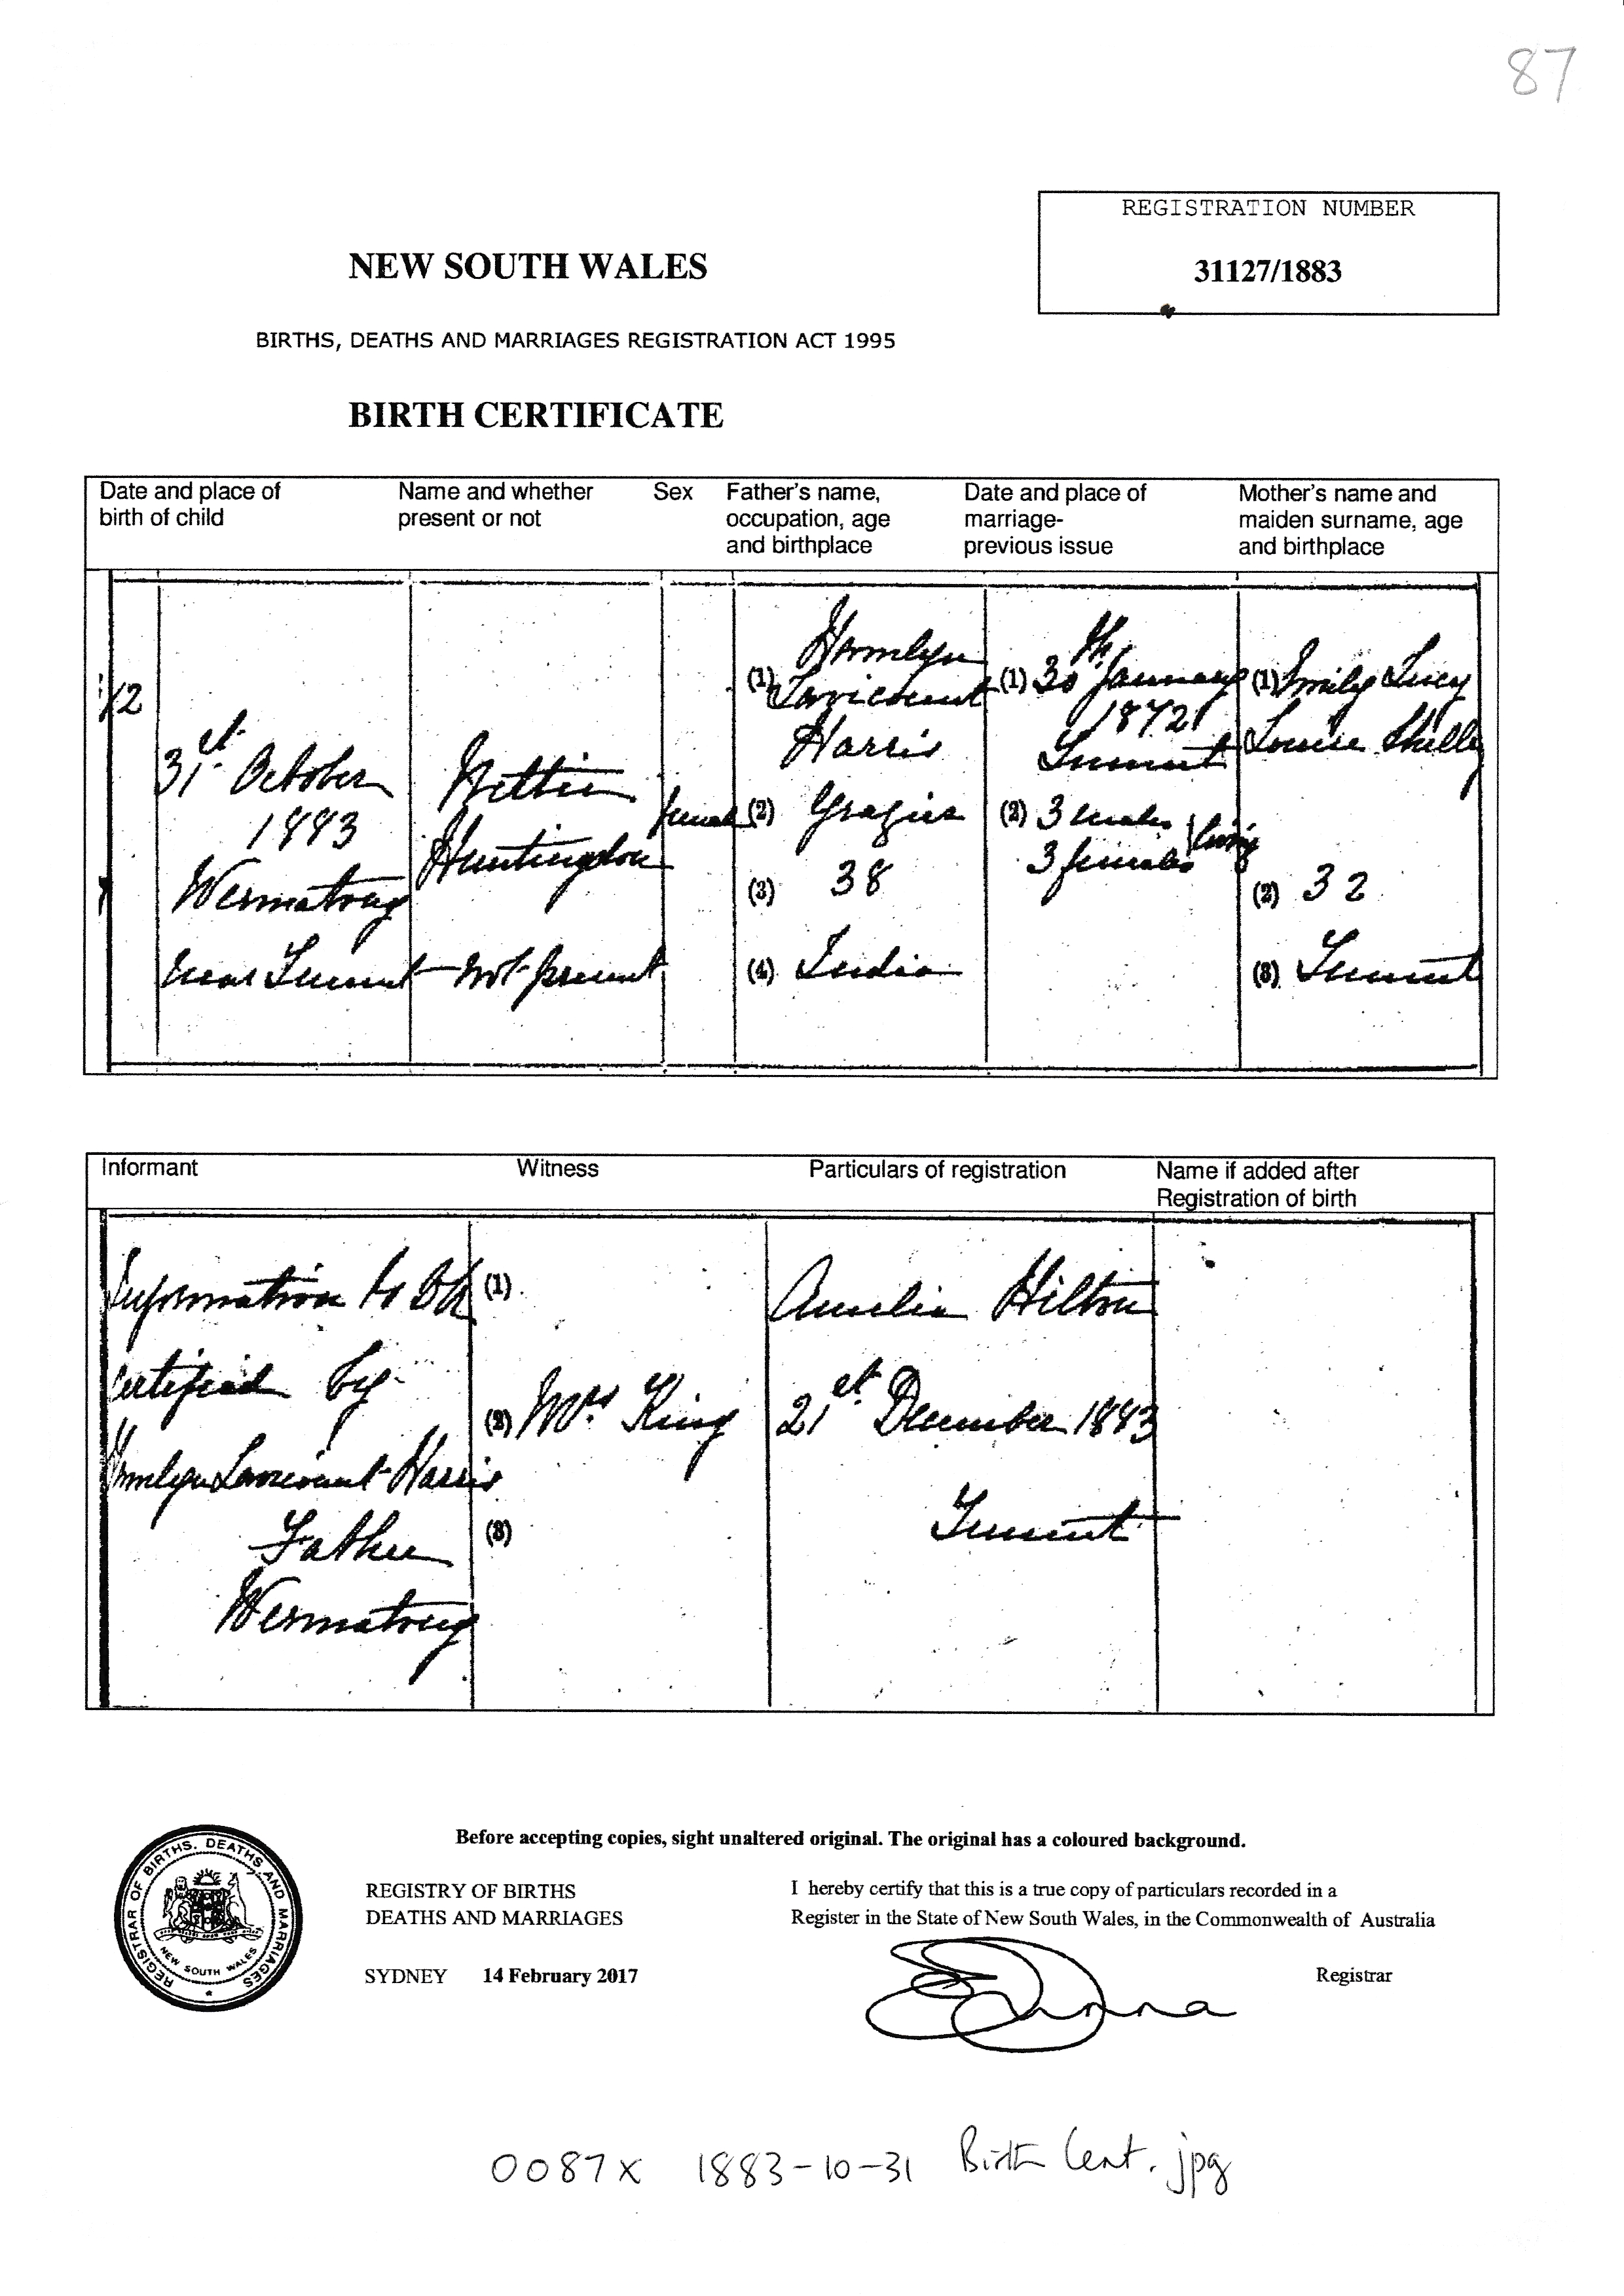 87
REGISTRATION NUMBER
31127/1883
NEW SOUTH WALES
BIRTHS, DEATHS AND MARRIAGES REGISTRATION ACT 1995
BIRTH CERTIFICATE
Date and place of birth of child
Name and whether present or not
Sex
Father's name, occupation, age and birthplace
Date and place of marriage- previous issue
Mother's name and maiden surname, age and birthplace
31st October
1883
Wermatong
near Tumut
Nettie
Huntingdon
not present
female
(1) Hamlyn
Lavicount
Harris
(2) Grazier
(3) 38
(4) India
(1) 30th January
1872
Tumut
(2) 3 males
3 females } living
(1) Emily Lucy
Louise Shelley
(2) 32
(3) Tumut
Informant
Witness
Particulars of registration
Name if added after Registration of birth
Information to
Certified by
Hamlyn Lavicount Harris
Father
Wermatong
(1)
(2) Mrs. King
(3)
Amelia Hilton
21st December 1883
Tumut
REGISTRAR OF BIRTHS, DEATHS AND MARRIAGES
NEW SOUTH WALES
Before accepting copies, sight unaltered original. The original has a coloured background.
REGISTRY OF BIRTHS
DEATHS AND MARRIAGES
SYDNEY 14 February 2017
I hereby certify that this is a true copy of particulars recorded in a
Register in the State of New South Wales, in the Commonwealth of Australia
Registrar
0087x 1883-10-31 Birth Cert.jpg